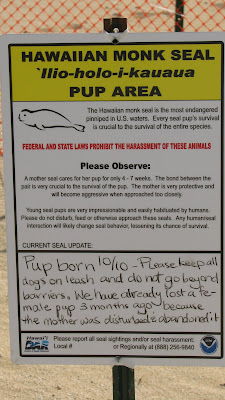 HAWAIIAN MONK SEAL
`Ilio-holo-i-kauaua
PUP AREA
The Hawaiian monk seal is the most endangered
pinniped in U.S. waters. Every seal pup's survival
is crucial to the survival of the entire species.
FEDERAL AND STATE LAWS PROHIBIT THE HARASSMENT OF THESE ANIMALS
Please Observe:
A mother seal cares for her pup for only 4 - 7 weeks. The bond between the
pair is very crucial to the survival of the pup. The mother is very protective and
will become aggressive when approached too closely.
Young seal pups are very impressionable and easily habituated by humans.
Please do not disturb, feed or otherwise approach these seals. Any human/seal
interaction will likely change seal behavior, lessening its chance of survival.
CURRENT SEAL UPDATE:
Pup born 10/10 - Please keep all
dogs on leash and do not go beyond
barriers. We have already lost a fe-
male pup 3 months ago because
the mother was disturbed & abandoned it
Hawai'i
DAR
Please report all seal sightings and/or seal harassment:
Local # or Regionally at (888) 256-9840
NOAA